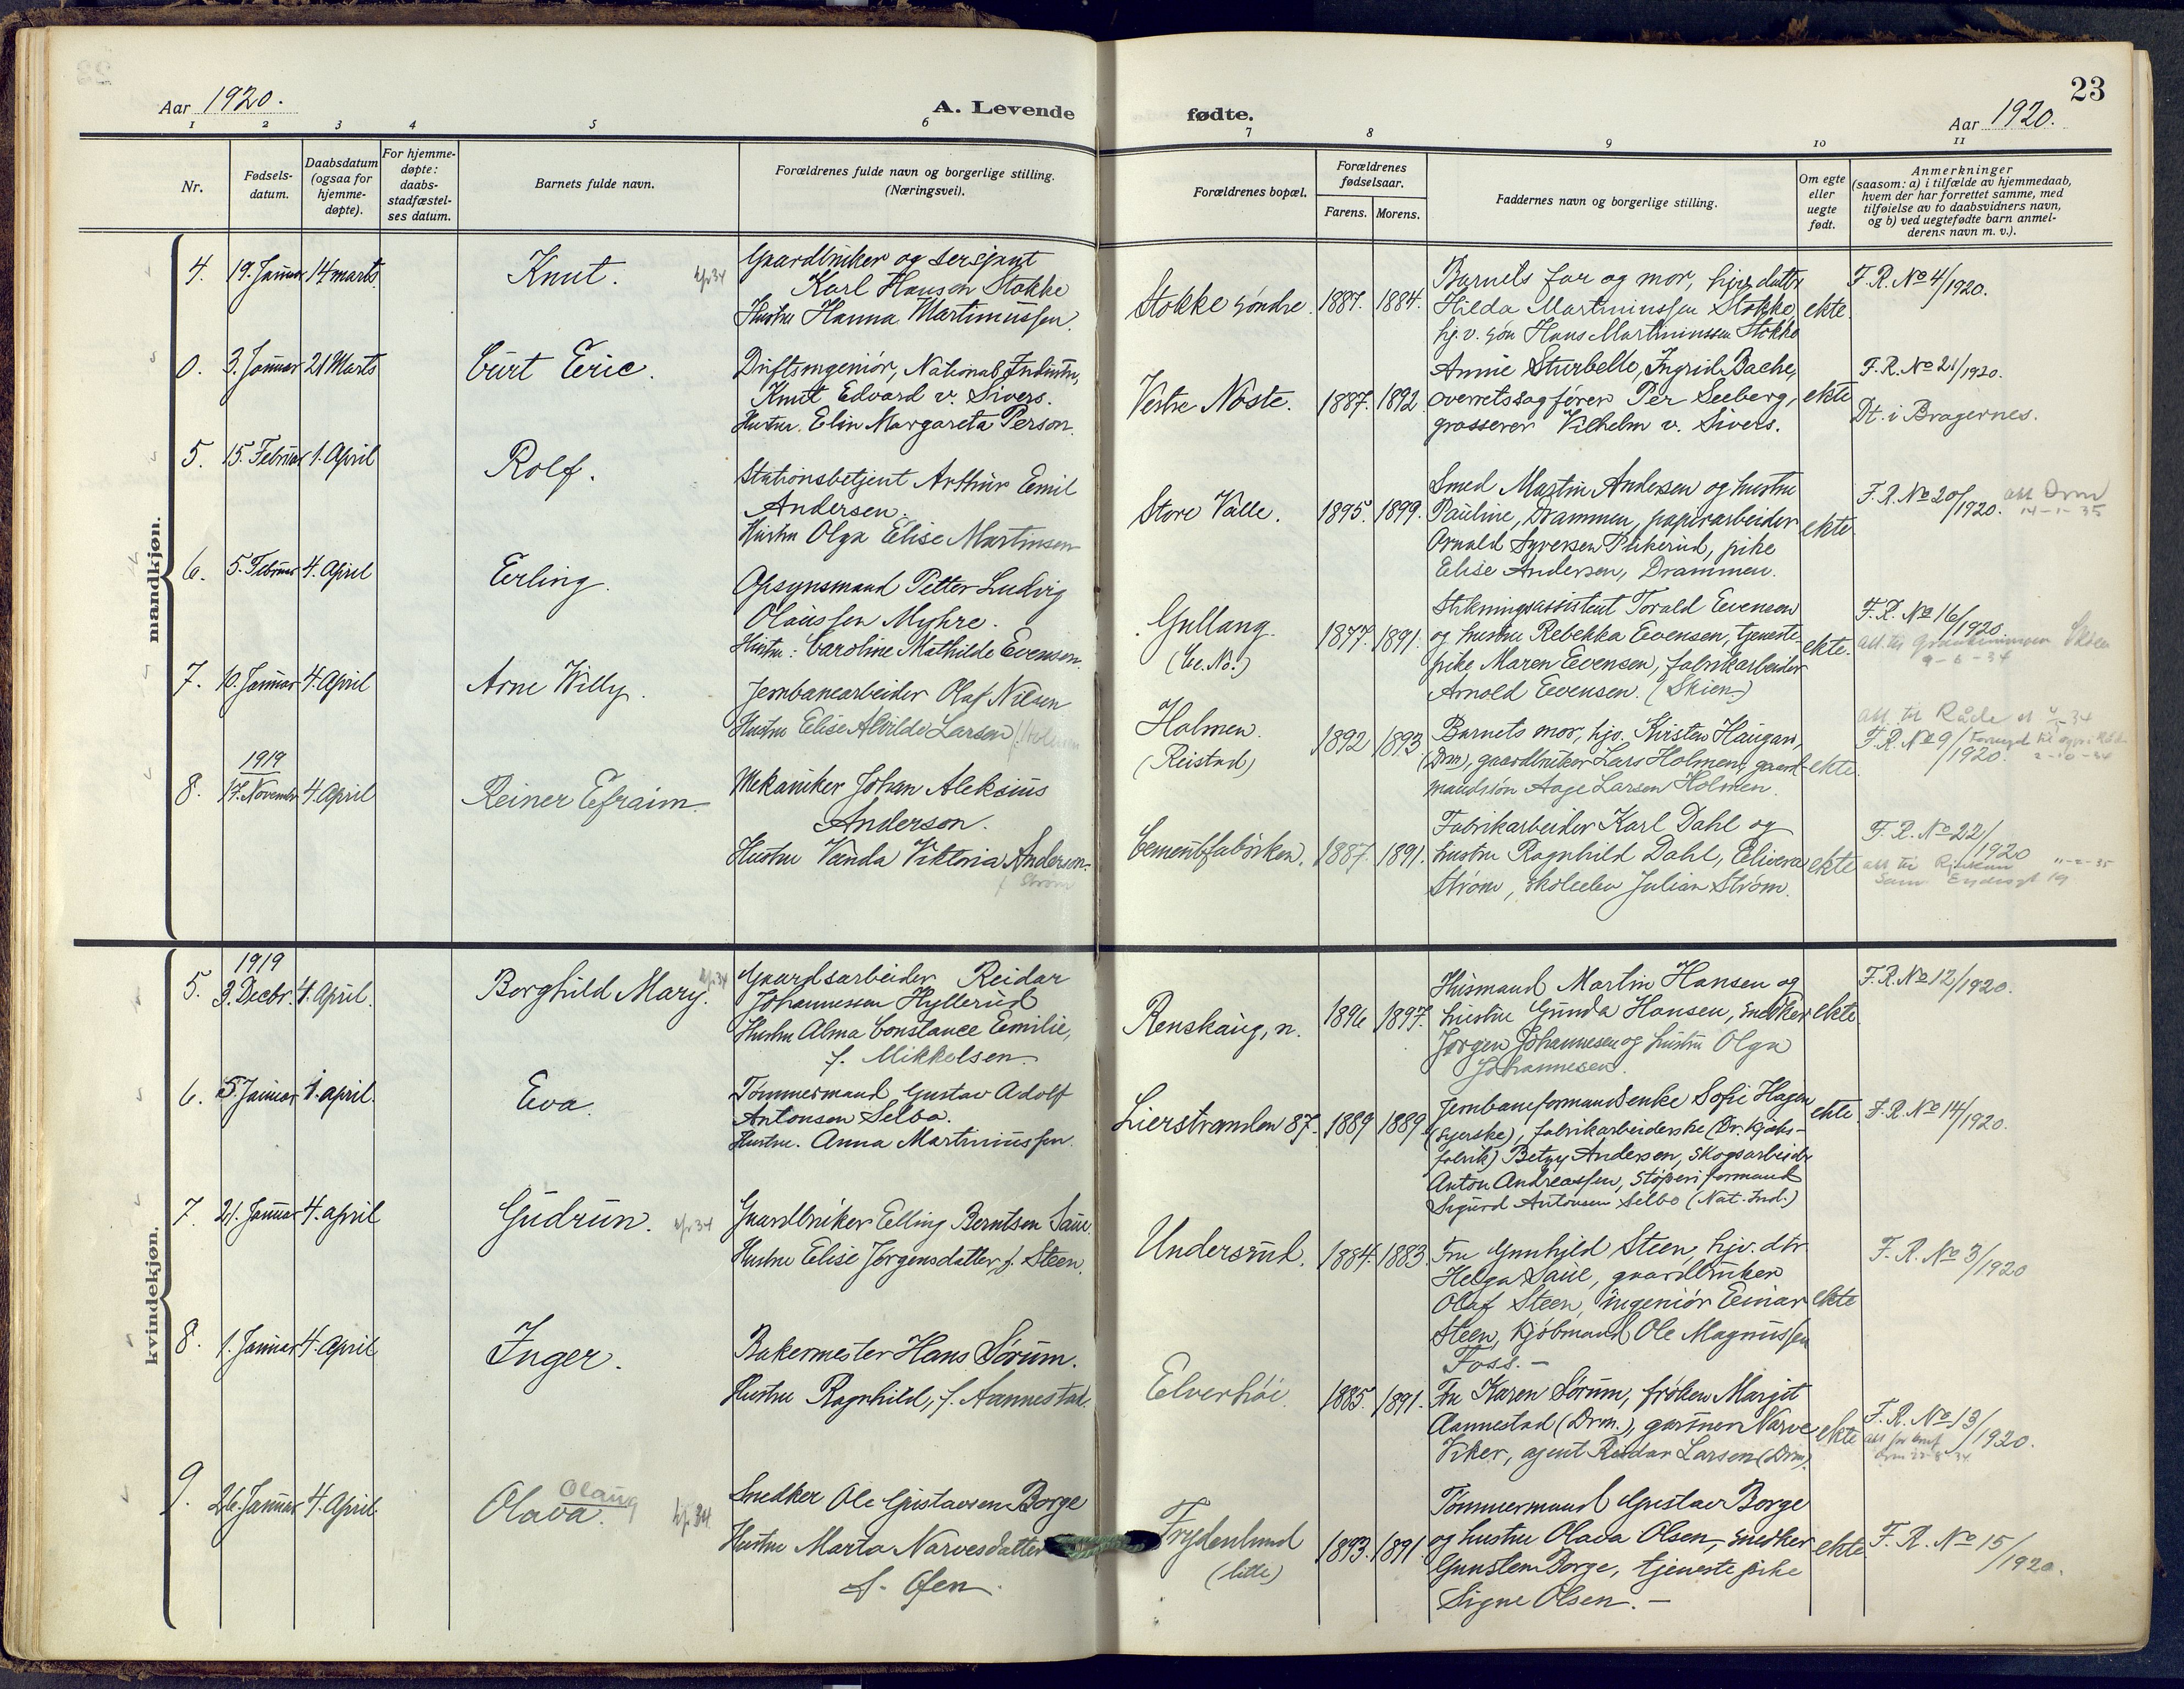 23
Aar 1920.
A. Levende fødte.
Aar 1920.
1 2 3 4 5 6 7 8 9 10 11
Nr.
Fødsels-
datum.
Daabsdatum
(ogsaa for
hjemme-
døpte).
For hjemme-
døpte:
daabs-
stadfæstel-
ses datum.
Barnets fulde navn.
Forældrenes fulde navn og borgerlige stilling.
(Næringsvei).
Forældrenes bopæl.
Forældrenes
fødselsaar.
Farens. Morens.
Faddernes navn og borgerlige stilling.
Om egte
eller
uegte
født.
Anmerkninger
(saasom: a) i tilfælde av hjemmedaab,
hvem der har forrettet samme, med
tilføielse av to daabsvidners navn,
og b) ved uegtefødte barn anmel-
derens navn m. v.).
mandkjøn.
4. 19. Januar 14 marts. Knut.
Gaardbruker og sersjant
Karl Hansen Stokke
Hustru Hanna Martinussen.
Stokke søndre. 1887. 1884.
Barnets far og mor, hjv. datter
Hilda Martinussen Stokke,
hj.v. søn Hans Martinussen Stokke
ekte.
F. R. No 4/1920.
0. 3. Januar 21 Marts Curt Eric.
Driftsingeniør, National Industri,
Knut Edvard v. Sivers.
Hustru. Elin Margareta Person.
Vestre Nøste. 1887. 1892
Annie Sturbelle, Ingrid Bache,
overretssagfører Per Seeberg,
grosserer Vilhelm v. Sivers.
ekte
F. R. No 21/1920.
Dt. i Bragernes.
5. 15. Februar 1. April Rolf.
Stationsbetjent Arthur Emil
Andersen.
Hustru Olga Elise Martinsen
Store Valle. 1895. 1899.
Smed Martin Andersen og hustru
Pauline, Drammen, papirarbeider
Arnold Syversen Plikerud, pike
Elise Andersen, Drammen.
ekte
F. R. No 20/1920. att Drm
14-1-35
6. 5. Februar 4. April Erling.
Opsynsmand Petter Ludvig
Olaussen Myhre.
Hustru: Caroline Mathilde Evensen.
Gullaug.
1877. 1891.
Stikningsassistent Torald Evensen
og hustru Rebekka Evensen, tjeneste-
pike Maren Evensen, fabrikarbeider
Arnold Evensen. (Skien)
ekte.
F. R. No 16/1920.
7. 10. Januar 4. April Arne Willy.
Jernbanearbeider Olaf Nilsen
Hustru Elise Alvilde Larsen
Holmen.
(Reistad)
1892 1893
Barnets mor, hjv. Kirsten Haugan,
(Drm), gaardbruker Lars Holmen, gaard-
mandssøn Aage Larsen Holmen.
ekte.
att. til Råde
F. R. No 9/1920.
1919
8. 17. Novembr 4. April Reiner Efraim.
Mekaniker Johan Aleksius
Anderson.
Hustru Vanda Viktoria Anderson.
f. Strøm
Cementfabriken. 1887. 1891.
Fabrikarbeider Karl Dahl og
hustru Ragnhild Dahl, Elivera
Strøm, skoleelev Julian Strøm.
ekte
F. R. No 22/1920
att til Rjukan
kvindekjøn.
1919
5. 3. Decbr. 4. April. Borghild Mary.
Gaardsarbeider Reidar
Johannesen Hyllerud
Hustru Alma Constance Emilie,
f. Mikkelsen
Renskaug, n. 1896 1897.
Husmand Martin Hansen og
hustru Gunda Hansen, snedker
Jørgen Johannesen og hustru Olga
Johannesen.
ekte
F. R. No 12/1920.
6. 5. Januar 4. april. Eva.
Tømmermand Gustav Adolf
Antonsen Selbo.
Hustru. Anna Martinussen.
Lierstranden 87. 1889 1889
Jernbaneformandsenke Sofie Hagen
(syerske), fabrikarbeiderske (Dr. kjæks-
fabrik) Betzy Andersen, skogsarbeider
Anton Andreassen, støperiformand
Sigurd Antonsen Selbo (Nat. Ind.)
ekte.
F. R. No 14/1920.
7. 21. Januar 4. april Gudrun.
Gaardbruker Elling Berntsen Saue
Hustru Elise Jørgensdatter, f. Steen.
Undersrud. 1884. 1883.
Fru Gunhild Steen, hjv. dtr.
Helga Saue, gaardbruker
Olaf Steen, ingeniør Einar
Steen, kjøbmand Ole Magnussen
Foss. -
ekte
F. R. No 3/1920
8. 1. Januar 4. April Inger.
Bakermester Hans Sørum.
Hustru Ragnhild, f. Aannestad.
Elverhøi. 1885. 1891.
Fru Karen Sørum, frøken Margit
Aannestad (Drm.), gartner Narve
Viker, agent Reidar Larsen (Drm)
ekte
F. R. No 13/1920.
9. 26. Januar 4. April Olava. Olaug
Snedker Ole Gustavsen Borge
Hustru Marta Narvesdatter
f. Ofen.
Frydenlund
(lille)
1893. 1891
Tømmermand Gustav Borge
og hustru Olava Olsen, snedker
Gunstein Borge, tjenestepike
Signe Olsen. -
ekte
F. R. No 15/1920.